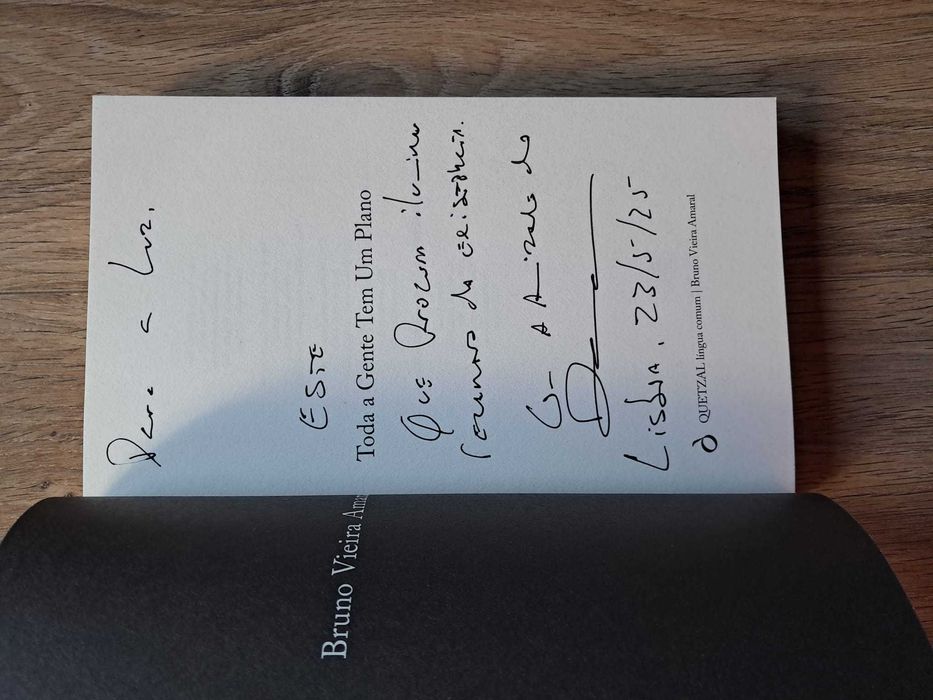 Para a Luz,
Este
Toda a Gente Tem Um Plano
Que procura iluminar
da existência.
Com a amizade do
Lisboa, 23/5/25
QUETZAL língua comum | Bruno Vieira Amaral
Bruno Vieira Amar